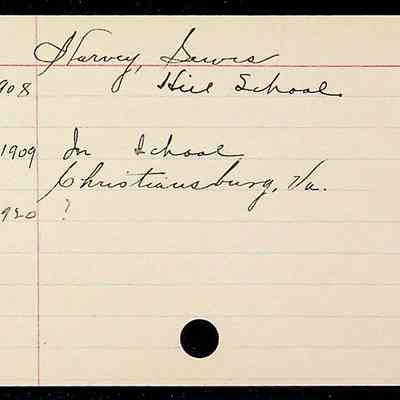 Harvey, Lewis
908 Hill School
1909 In School
Christiansburg, Va.
920 ?